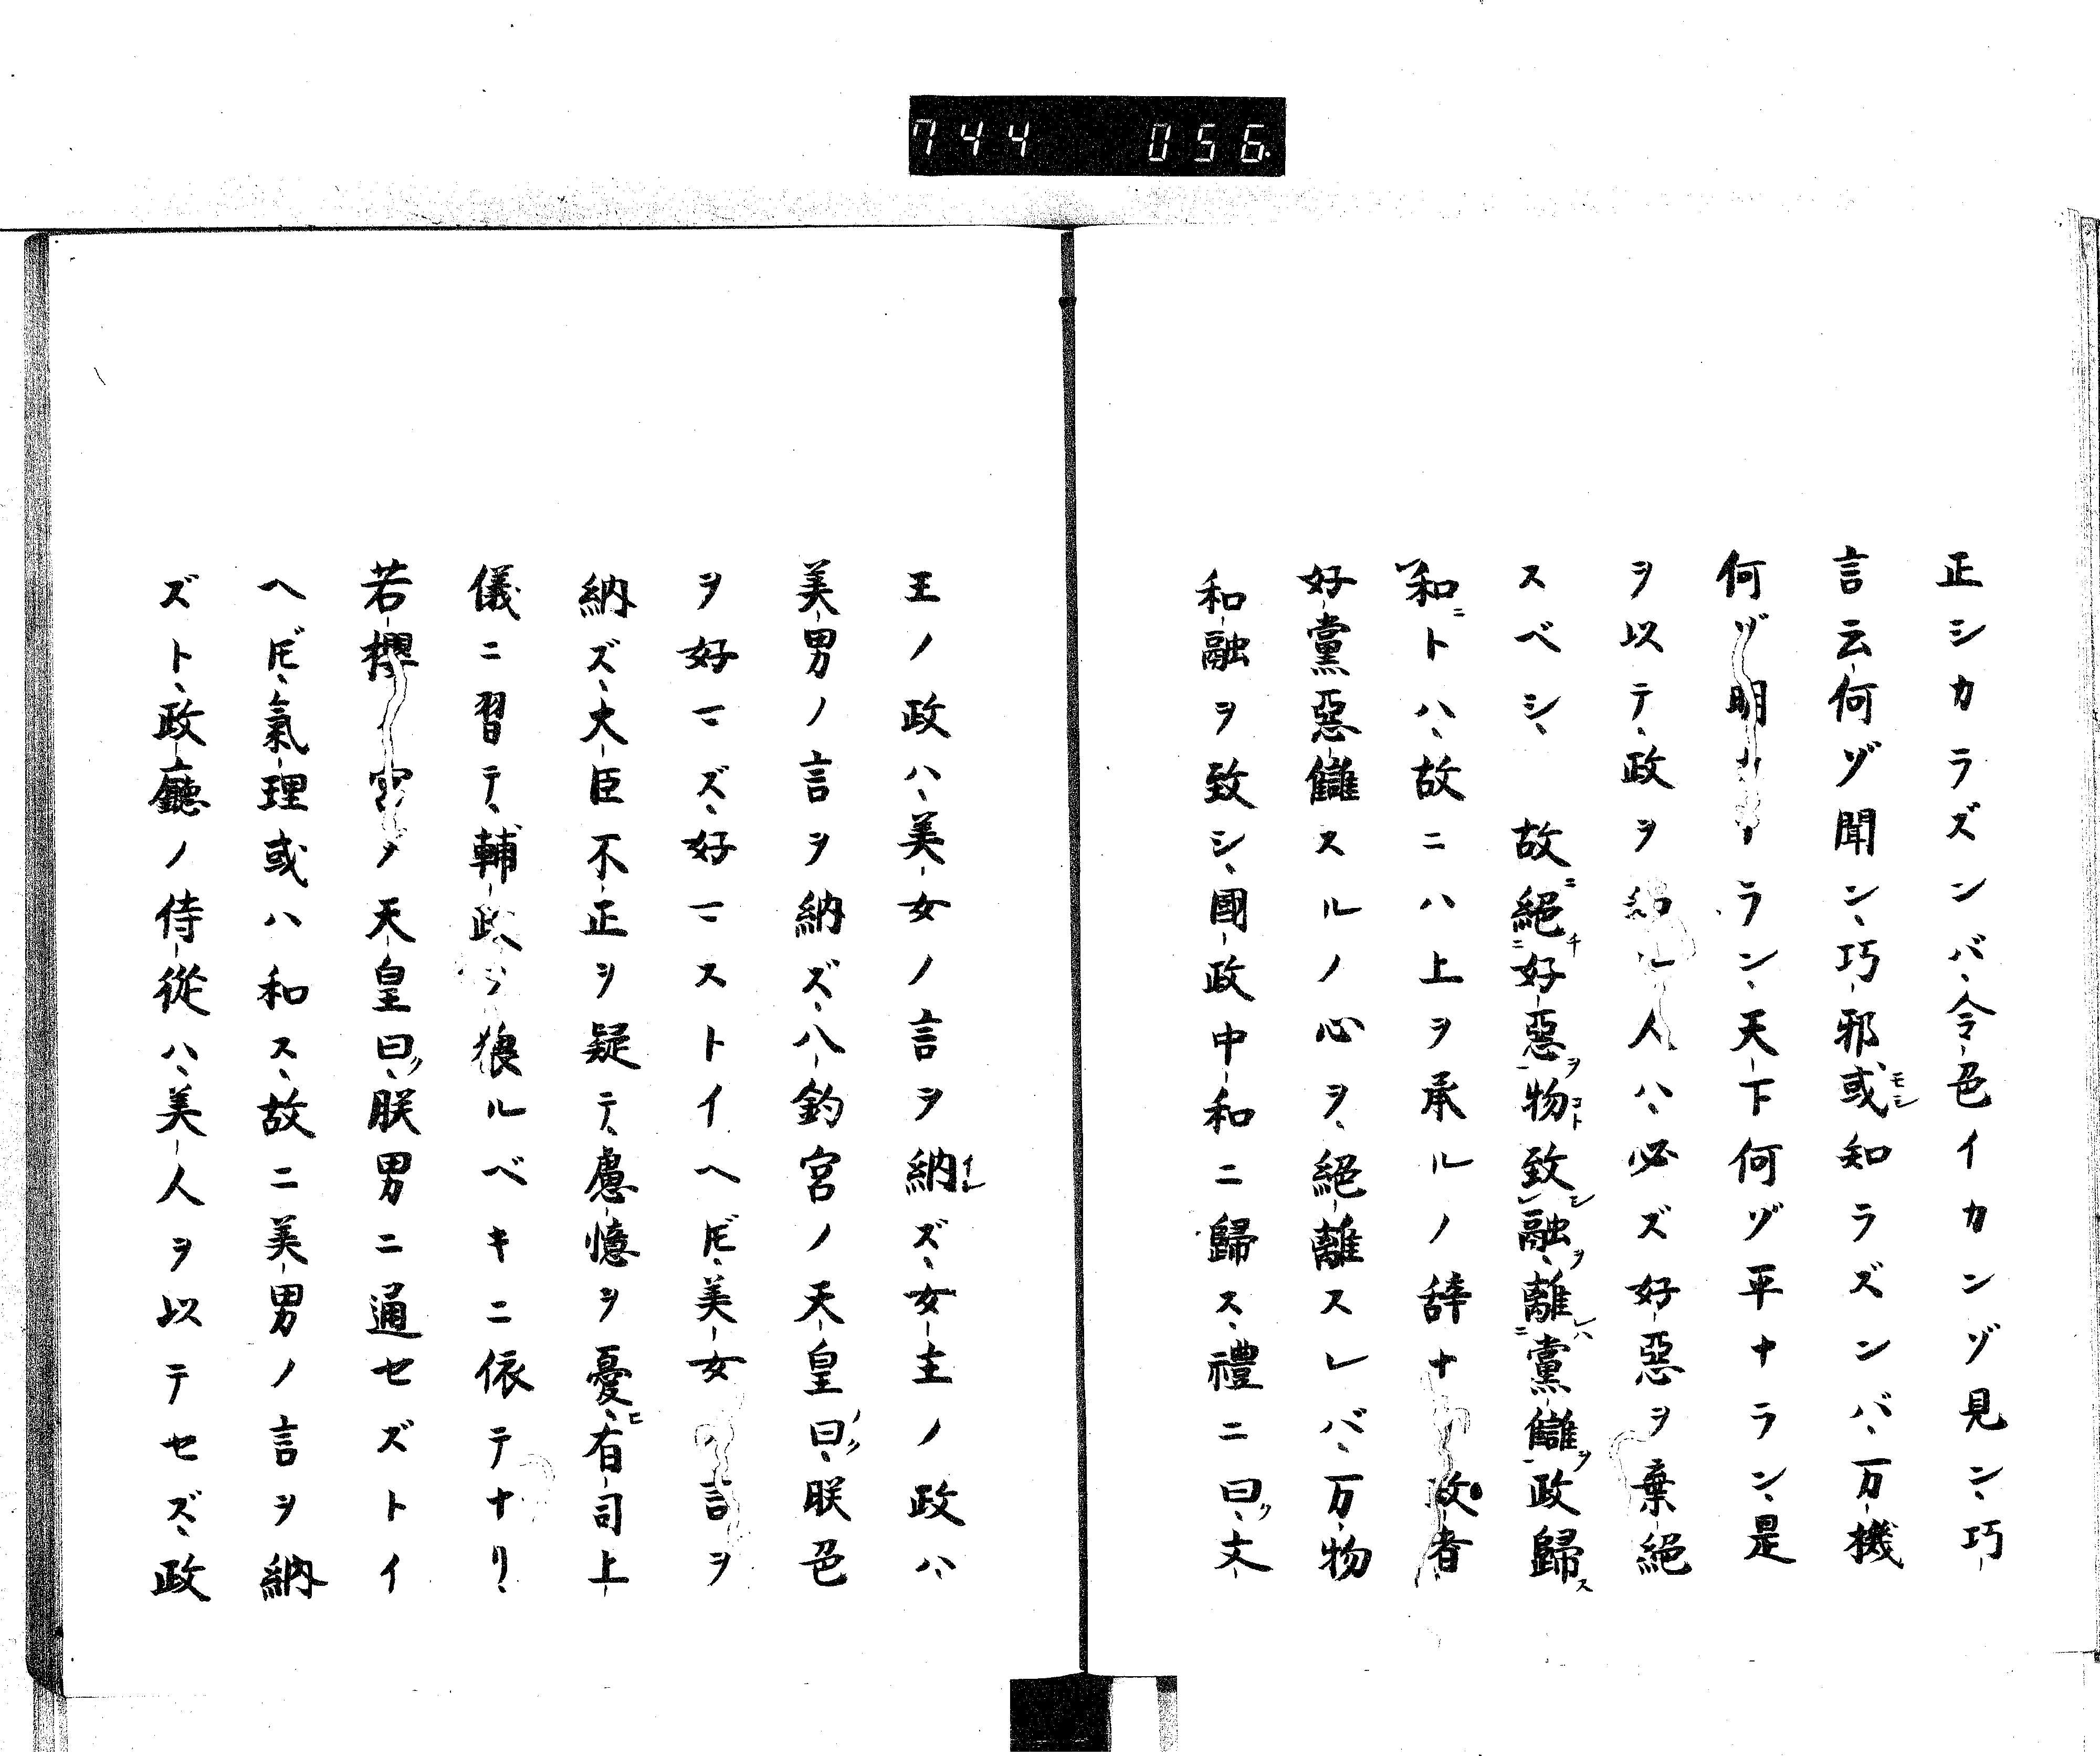 744 056
正シカラズンバ、令色イカンゾ見ン、巧
言云何ゾ聞ン、巧邪或モシ知ラズンバ、万機
何ゾ明ナラン、天下何ゾ平ナラン、是
ヲ以テ、政ヲ人ハ、必ズ好惡ヲ棄絕
スベシ、故ニ絕チ好惡ヲ物コト致シ融ヲ、離レバ黨讎ヲ政歸ス
和ニトハ、故ニハ上ヲ承ルノ辞ナ政者
好黨惡讎スルノ心ヲ、絕離スレバ、万物
和融ヲ致シ、國政中和ニ歸ス、禮ニ曰ク、文
王ノ政ハ、美女ノ言ヲ納イレズ、女主ノ政ハ、
美男ノ言ヲ納ズ、八釣宮ノ天皇ノ曰ク、朕色
ヲ好マズ、好マストイヘドモ、美女言ヲ
納ズ、大臣不正ヲ疑テ、慮憶ヲ憂ヒ、有司上
儀ニ習テ、輔政ヲ猥ルベキニ依テナリ、
若櫻宮ノ天皇曰ク、朕男ニ通セズトイ
ヘドモ、氣理或ハ和ス、故ニ美男ノ言ヲ納
ズト、政廳ノ侍從ハ、美人ヲ以テセズ、政